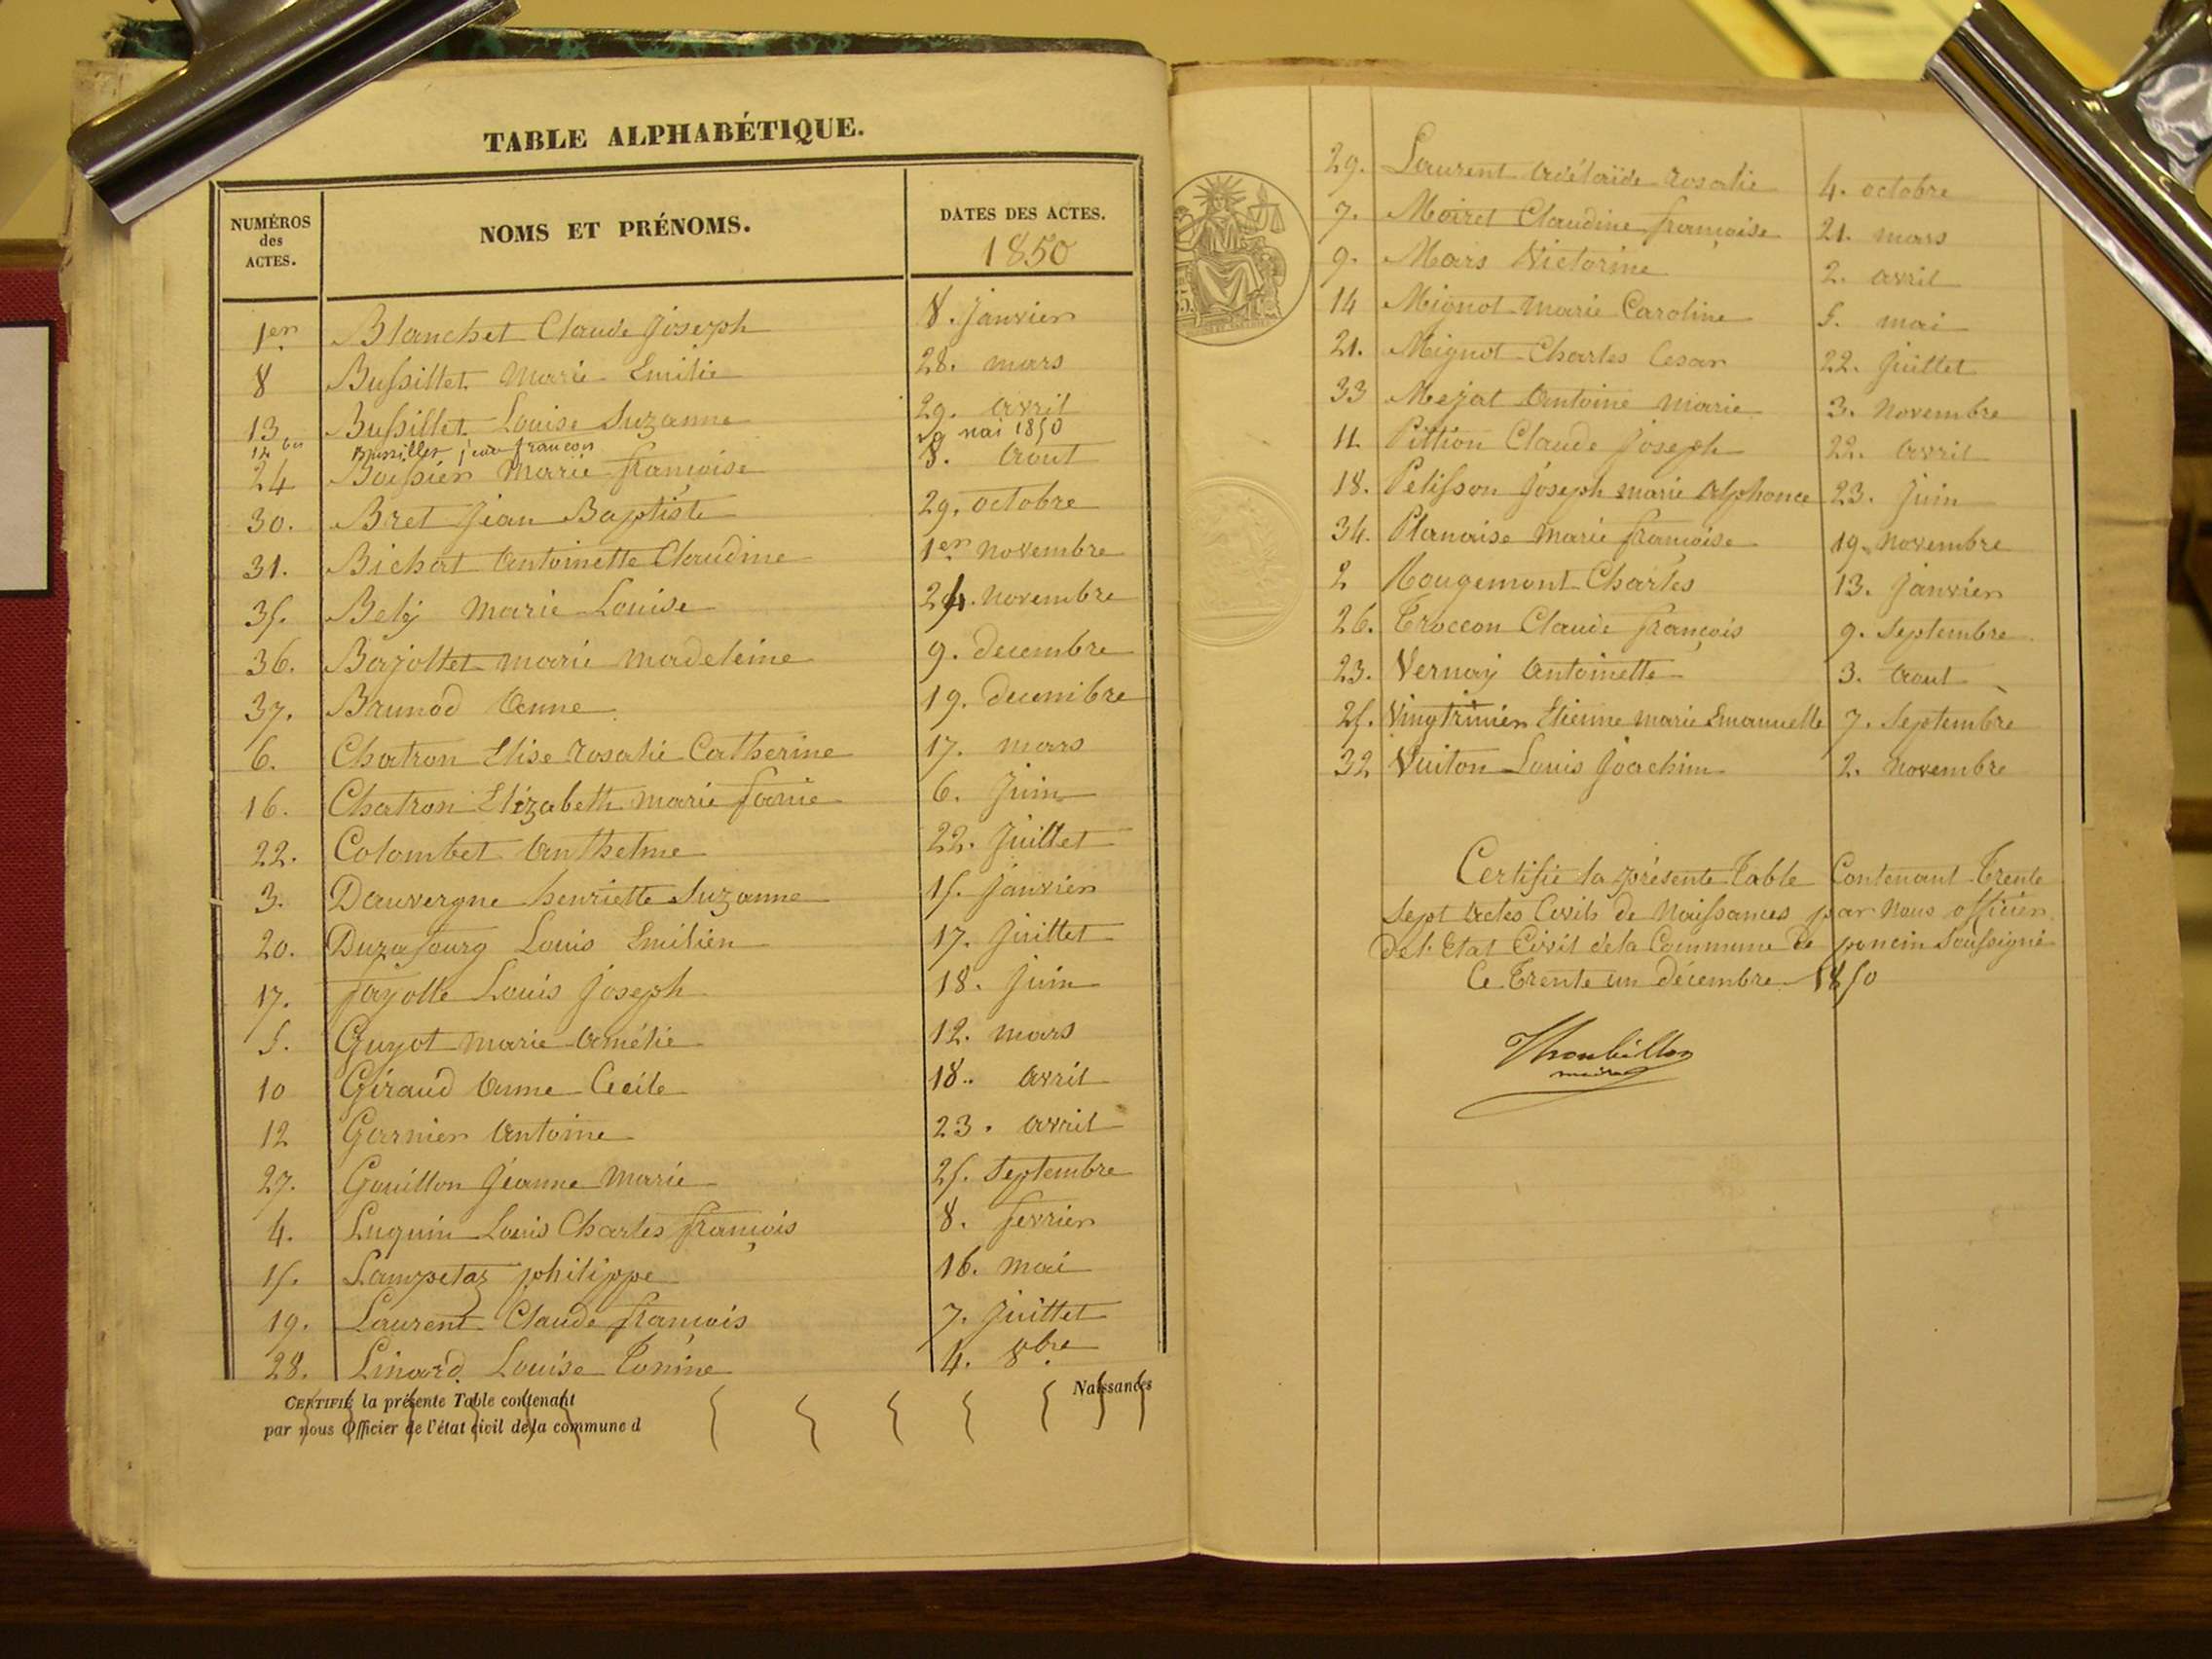 TABLE ALPHABÉTIQUE.
NUMÉROS des ACTES. NOMS ET PRÉNOMS. DATES DES ACTES.
1850
1er Blanchet Claude Joseph 8. Janvier
8 Bussillet Marie Emilie 28. mars
13 Bussillet Louise Suzanne 29. avril
12 bis Bussillet jean françois 19 mai 1850
24 Boissier Marie françoise 8. Aout
30. Bret Jean Baptiste 29. octobre
31. Bichat Antoinette Claudine 1er novembre
35. Bely Marie Louise 24. novembre
36. Bajollet marie madeleine 9. decembre
37. Brunod Anne 19. decembre
6. Chatron Elise rosalie Catherine 17. mars
16. Chatron Elizabeth marie fanie 6. Juin
22. Colombet Anthelme 22. Juillet
3. Dauvergne henriette Suzanne 15. Janvier
20. Duzafourg Louis Emilien 17. Juillet
17. fayolle Louis Joseph 18. Juin
5. Guyot marie Amélie 12. mars
10 Giraud Anne Cecile 18. avril
12 Garnier Antoine 23. avril
27. Gouillon Jeanne Marie 25. Septembre
4. Luquin Louis Charles françois 8. fevrier
15. Lampetaz philippe 16. mai
19. Laurent Claude françois 7. Juillet
28. Linard Louise Tonine 4. 8bre
CERTIFIÉ la présente Table contenant Naissances
par nous Officier de l'état civil de la commune d
29. Laurent Adélaïde rosalie 4. octobre
7. Moiret Claudine françoise 21. mars
9. Mars Victorine 2. avril
14 Mignot marie Caroline 5. mai
21. Mignot Charles Cesar 22. Juillet
33 Mejat Antoine marie 3. Novembre
11 Pittion Claude Joseph 22. avril
18. Pelisson Joseph marie alphonce 23. Juin
34. Planaise Marie françoise 19. Novembre
2 Rougemont Charles 13. Janvier
26. Troccon Claude françois 9. Septembre
23. Vernay Antoinette 3. Aout
25. Vingtrinier Etienne marie Emanuelle 7. Septembre
32 Vuiton Louis Joachim 2. Novembre
Certifié la présente Table Contenant Trente
Sept Actes Civils de Naissances par Nous officier
de l'Etat Civil de la Commune de poncin Soussigné
Ce Trente un décembre 1850
Thoubillon
maire